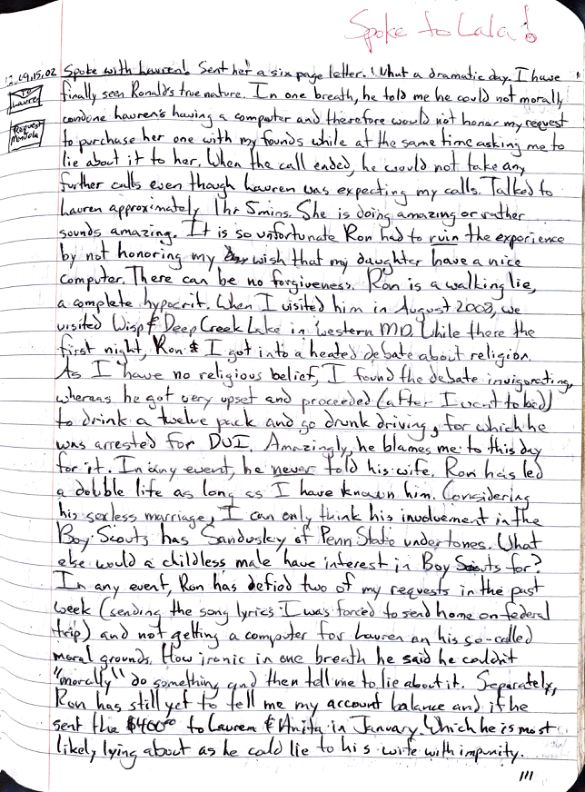 Spoke to Lala!
.19.15.02 Spoke with Lauren! Sent her a six page letter. What a dramatic day. I have
To Lauren
finally seen Ronald's true nature. In one breath, he told me he could not morally
condone Lauren's having a computer and therefore would not honor my request
Request
to purchase her one with my founds while at the same time asking me to
lie about it to her. When the call ended, he would not take any
further calls even though Lauren was expecting my calls. Talked to
Lauren approximately 1 hr 5 mins. She is doing amazing or rather
sounds amazing. It is so unfortunate Ron had to ruin the experience
by not honoring my wish that my daughter have a nice
computer. There can be no forgiveness. Ron is a walking lie,
a complete hypocrit. When I visited him in August 2002, we
visited Wisp & Deep Creek Lake in western MD. While there the
first night, Ron & I got into a heated debate about religion.
As I have no religious belief, I found the debate invigorating,
whereas he got very upset and proceeded (after I went to bed)
to drink a twelve pack and go drunk driving, for which he
was arrested for DUI. Amazingly, he blames me to this day
for it. In any event, he never told his wife. Ron has led
a double life as long as I have known him. Considering
his sexless marriage, I can only think his involvement in the
Boy Scouts has Sandusky of Penn State undertones. What
else would a childless male have interest in Boy Scouts for?
In any event, Ron has defied two of my requests in the past
week (sending the song lyrics I was forced to send home on federal
trip) and not getting a computer for Lauren on his so-called
moral grounds. How ironic in one breath he said he couldn't
"morally" do something and then tell me to lie about it. Separately,
Ron has still yet to tell me my account balance and if he
sent the $400.00 to Lauren & Anita in January. Which he is most
likely lying about as he cold lie to his wife with impunity.
111